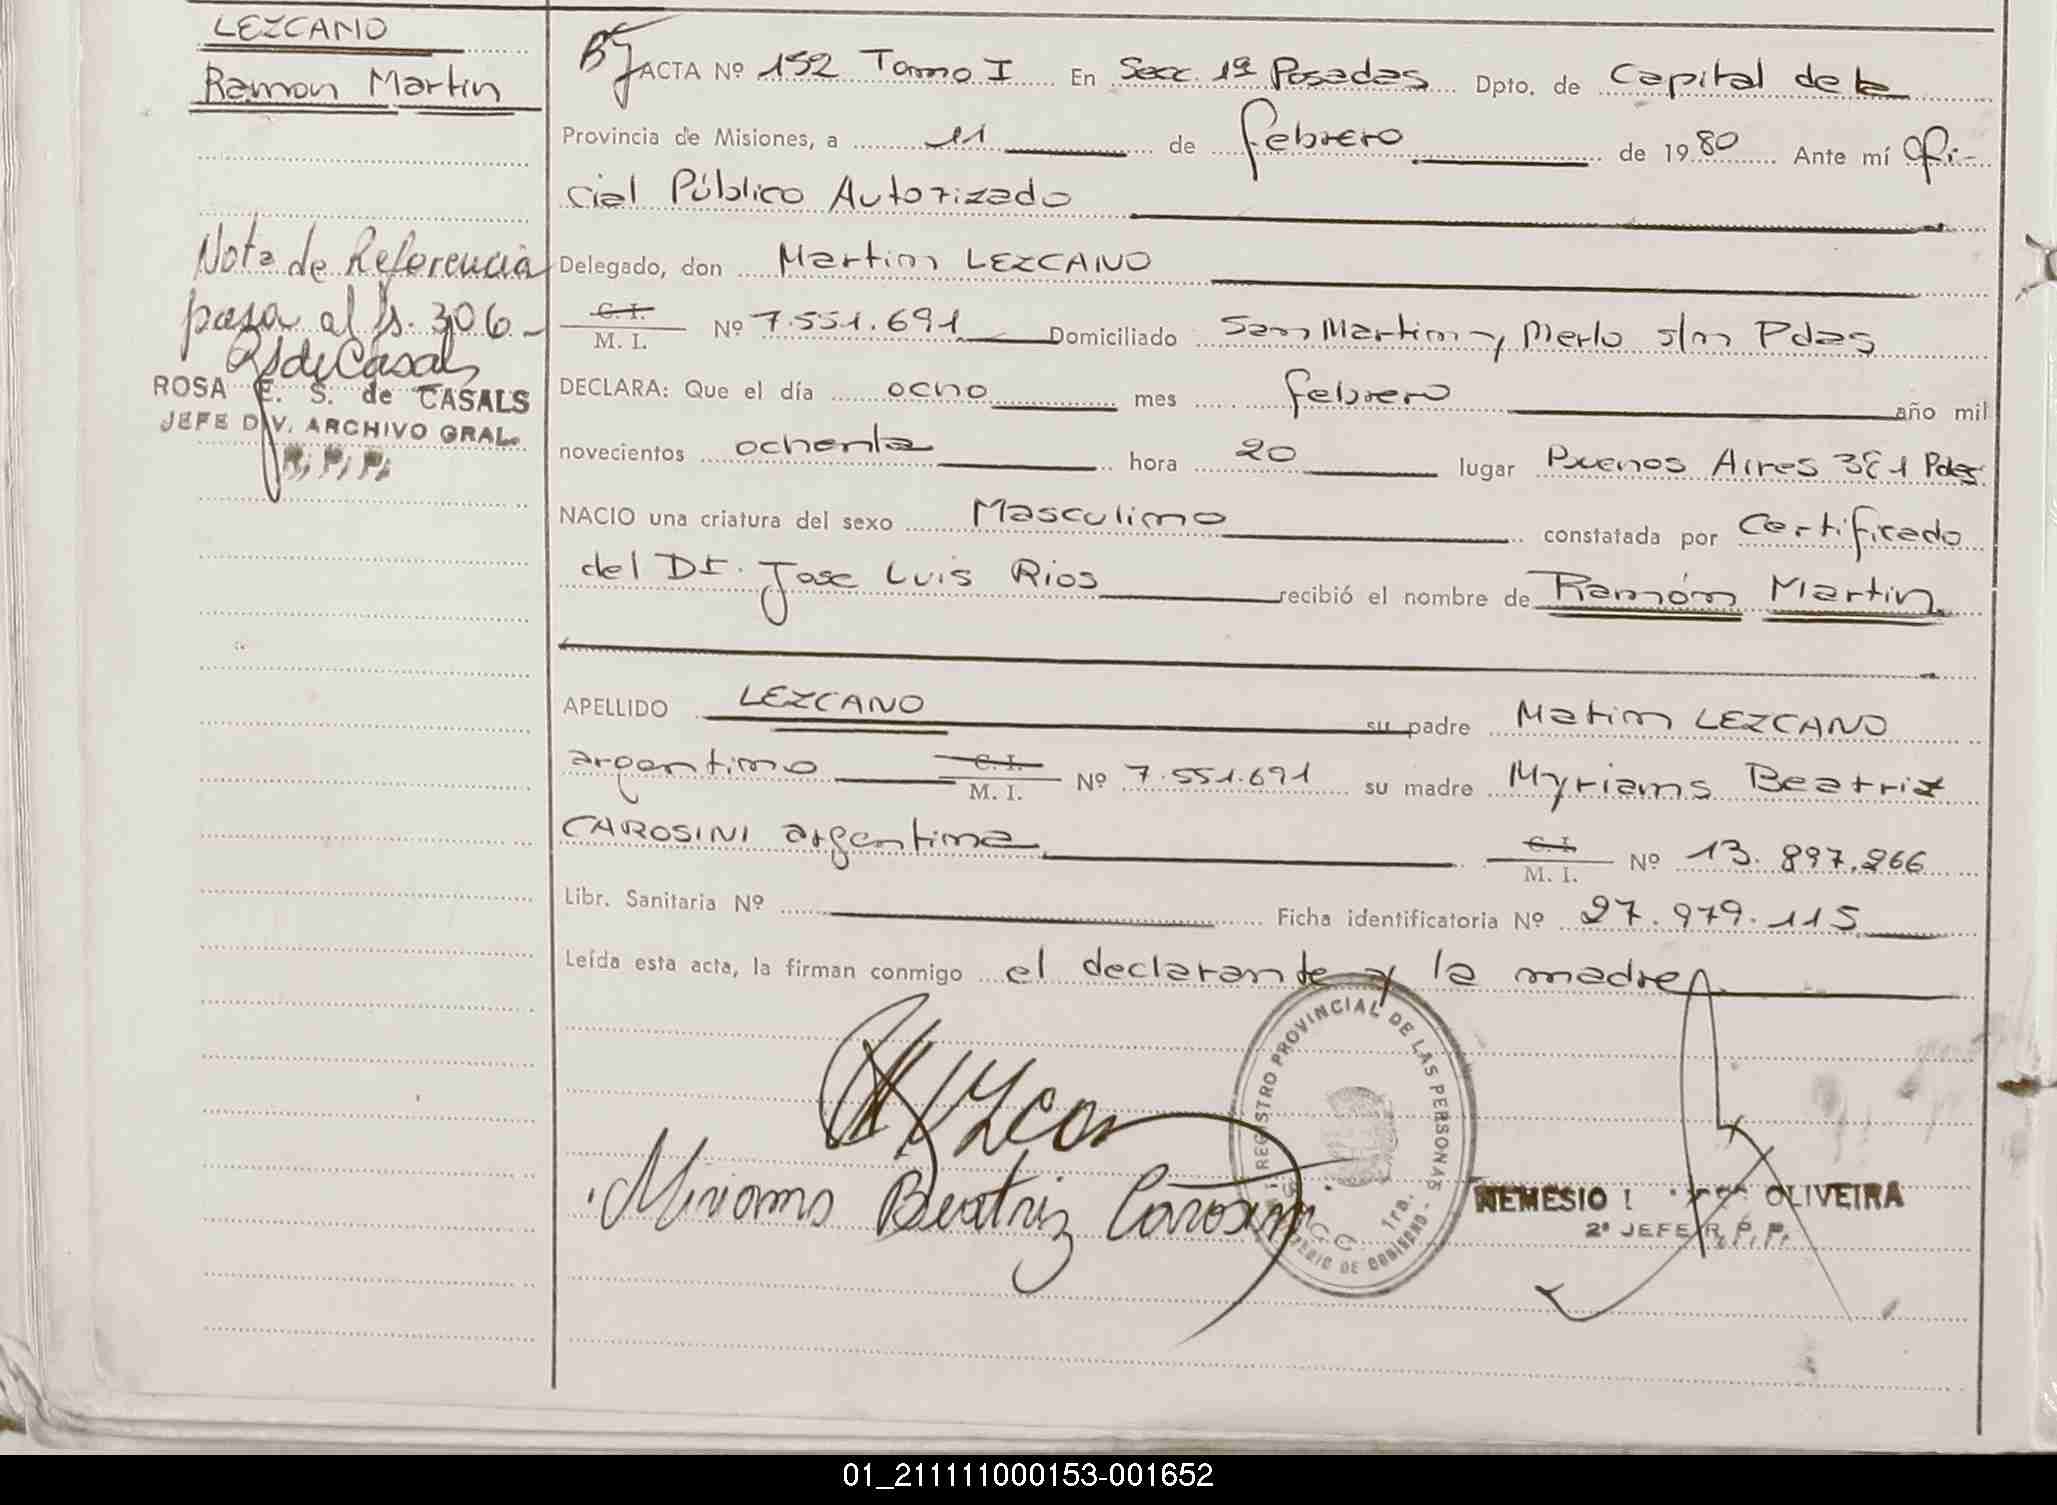 LEZCANO
Ramon Martin
Nota de Referencia
pasa al fs. 306-
RSdeCasals
ROSA E. S. de CASALS
JEFE DIV. ARCHIVO GRAL.
R, P, P,
ACTA Nº 152 Tomo I En Secc. 1ª Posadas Dpto. de Capital de la
Provincia de Misiones, a 11 de febrero de 1980 Ante mí Ofi-
cial Público Autorizado
Delegado, don Martin LEZCANO
C. I.
M. I. Nº 7.551.691 Domiciliado San Martin y Merlo s/n Pdas
DECLARA: Que el día ocho mes febrero año mil
novecientos ochenta hora 20 lugar Buenos Aires 381 Pdas.
NACIO una criatura del sexo Masculino constatada por Certificado
del Dr. Jose Luis Rios recibió el nombre de Ramón Martin
APELLIDO LEZCANO su padre Matin LEZCANO
argentino C. I.
M. I. Nº 7.551.691 su madre Myriams Beatriz
CAROSINI argentina C. I.
M. I. Nº 13.897.266
Libr. Sanitaria Nº Ficha identificatoria Nº 27.979.115
Leída esta acta, la firman conmigo el declarante y la madre
REGISTRO PROVINCIAL DE LAS PERSONAS
1ra.
DE GOBIERNO
Miriams Beatriz Carosini
NEMESIO OLIVEIRA
2º JEFE R, P, P,
01_211111000153-001652